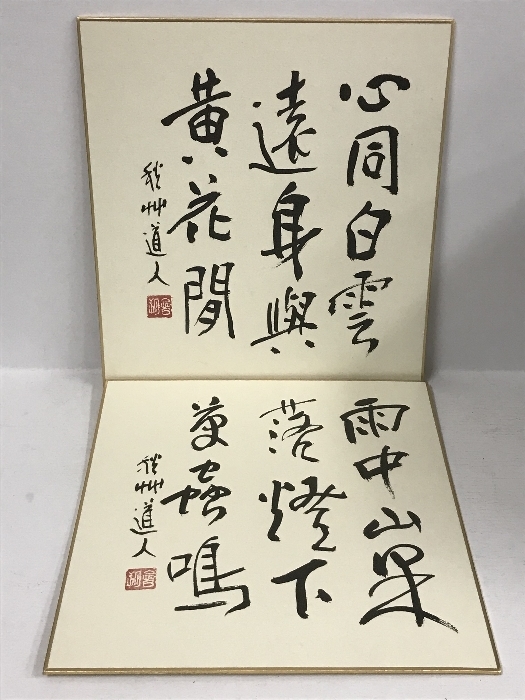 心同白雲
遠身與
黄花閒
秋艸道人
雨中山果
落燈下
草蟲鳴
秋艸道人